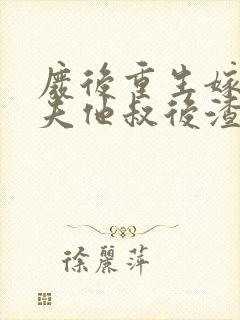 廢後重生嫁
夫他叔後渣
徐麗萍